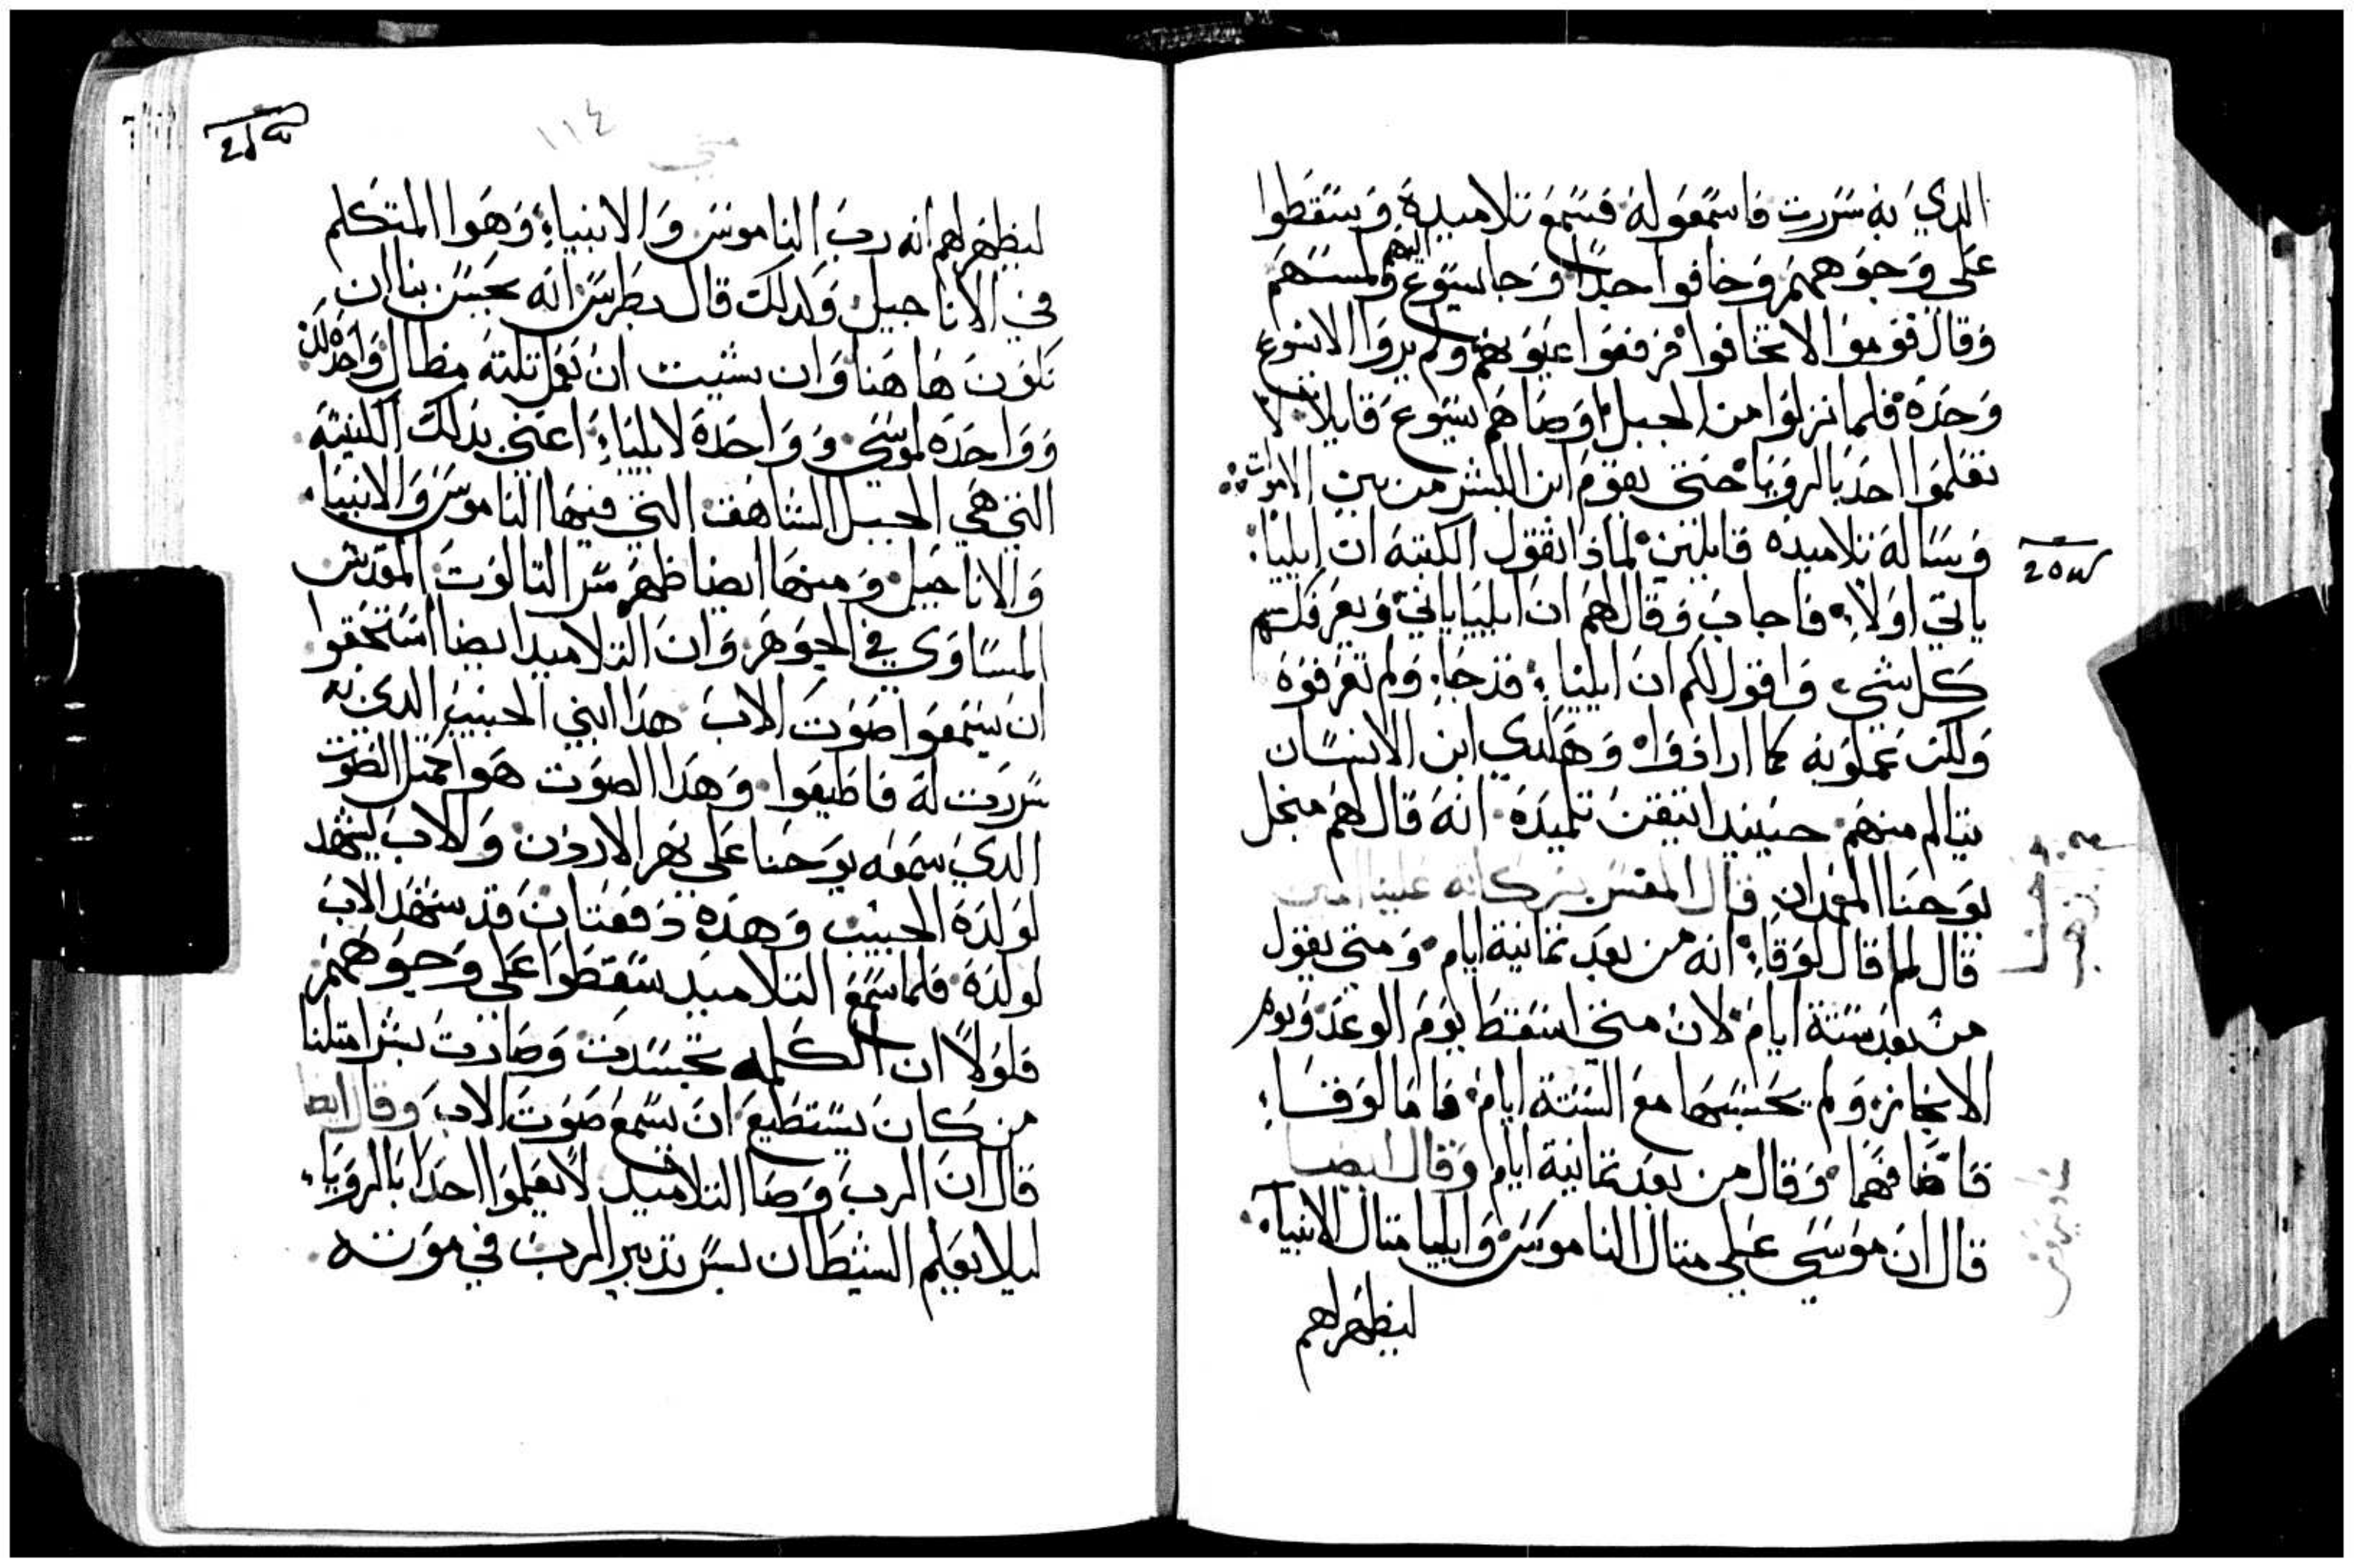 الدي به سررت فاسمعوا له فسمع تلاميده وسقطوا
على وجوههم وخافوا جدًا وجا يسوع اليهم ولمسهم
وقال قوموا لا تخافوا فرفعوا عيونهم ولم يروا الا يسوع
وحده فلما نزلوا من الجبل اوصاهم يسوع قايلا لا
تعلموا احد بالرويا حتى يقوم ابن البشر من بين الاموات
وساله تلاميده قايلين لماذا تقول الكتبة ان ايليا
ياتي اولا فاجاب وقال لهم ان ايليا ياتي ويعرفكم
كل شي واقول لكم ان ايليا قد جا ولم تعرفوه
ولكن عملوا به كما ارادوا وهكدي ابن الانسان
يتالم منهم حينيد اتيقن تلميده انه قال لهم من اجل
يوحنا المعمدان قال المفسر بركاته علينا امين
قال لما قال لوقا انه من بعد تمانية ايام ومتى يقول
من بعد ستة ايام لان متى اسقط يوم الوعد ويوم
الانجاز ولم يحسبها مع الستة ايام فاما لوقا
فاضافهما وقال من بعد تمانية ايام وقال ايضا
قال ان موسى على متال الناموس وايليا متال الانبياء
ليظهر لهم
متى ١١٤
ليظهر لهم انه رب الناموس والانبياء وهوا المتكلم
في الاناجيل ولدلك قال بطرس انه يحسن بنا ان
نكون هاهنا وان شيت ان نعمل تلته مظال واحده لك
وواحده لموسى وواحده لايلياء اعني بدلك الكنيسه
التي هي الجبل الشاهق التي فيها الناموس والانبياء
والاناجيل ومنها ايضا ظهر سر التالوت المقدس
المساوي في الجوهر وان التلاميد ايضا استحقوا
ان يسمعوا صوت الاب هدا ابني الحبيب الدي به
سررت له فاطيعوا وهدا الصوت هوا جميل الصوت
الدي سمعه يوحنا على نهر الاردن والاب يشهد
لولده الحبيب وهده دفعتان قد شهد الاب
لولده فلما سمع التلاميد سقطوا على وجوههم
فلولا ان الكلمه تجسدت وصارت بشرا متلنا
من كان يستطيع ان يسمع صوت الاب وقال ايضا
قال ان الرب وصا التلاميد لا يعلموا احدا بالرويا
ليلا يعلم الشيطان بسر تدبير الرب في موته